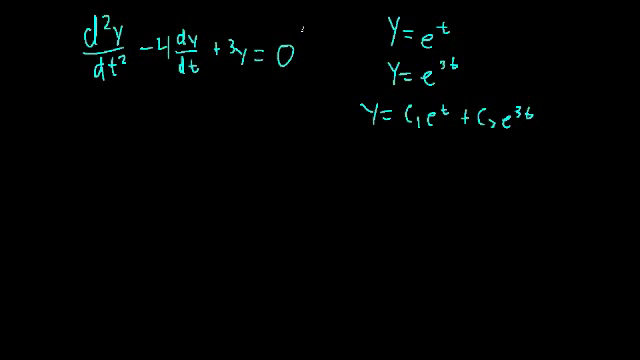 d²y/dt² - 4 dy/dt + 3y = 0
y = e^t
y = e^3t
y = C₁e^t + C₂e^3t